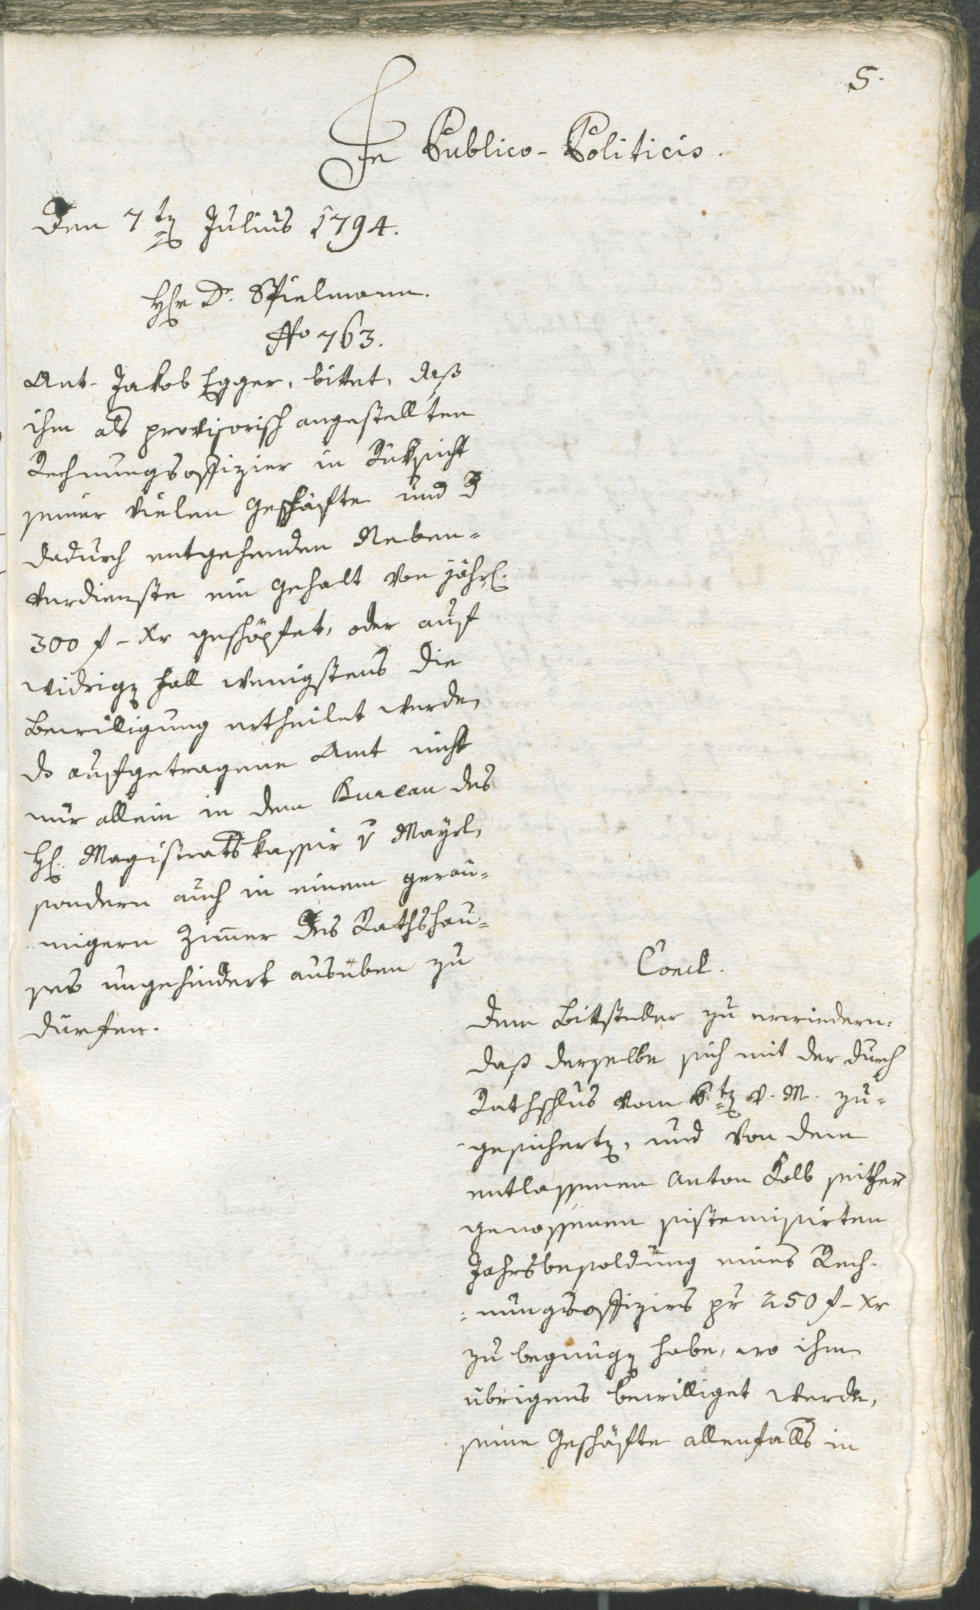 5.
In Publico-Politicis.
Den 7tn Julius 1794.
Hr Dr. Spielmann.
No 763.
Ant. Jakob Egger, bittet, daß
ihm als provisorisch angestellten
Rechnungsoffizier in Rüksicht
seiner vielen Geschäfte und
dadurch entgehenden Neben-
verdienste ein Gehalt von jährl.
300 f - Xr geschöpfet, oder auf
widrign Fall wenigstens die
Bewilligung ertheilet werde,
ds aufgetragene Amt nicht
nur allein in dem Bureau des
H. Magistratskassir v Mayrl,
sondern auch in einem geräu-
migern Zimer des Rathshau-
ses ungehindert ausüben zu
dürfen.
Concl.
Dem Bittsteller zu erwiedern:
daß derselbe sich mit der durch
Rathschlus vom 6tn v. M. zu-
gesichertn, und von dem
entlassenen Anton Kolb seither
genossenen sistemisirten
Jahrsbesoldung eines Rech-
nungsoffiziers pr 250 f - Xr
zu begnügn habe, wo ihm
übrigens bewilliget werde,
seine Geschäfte allenfalls in